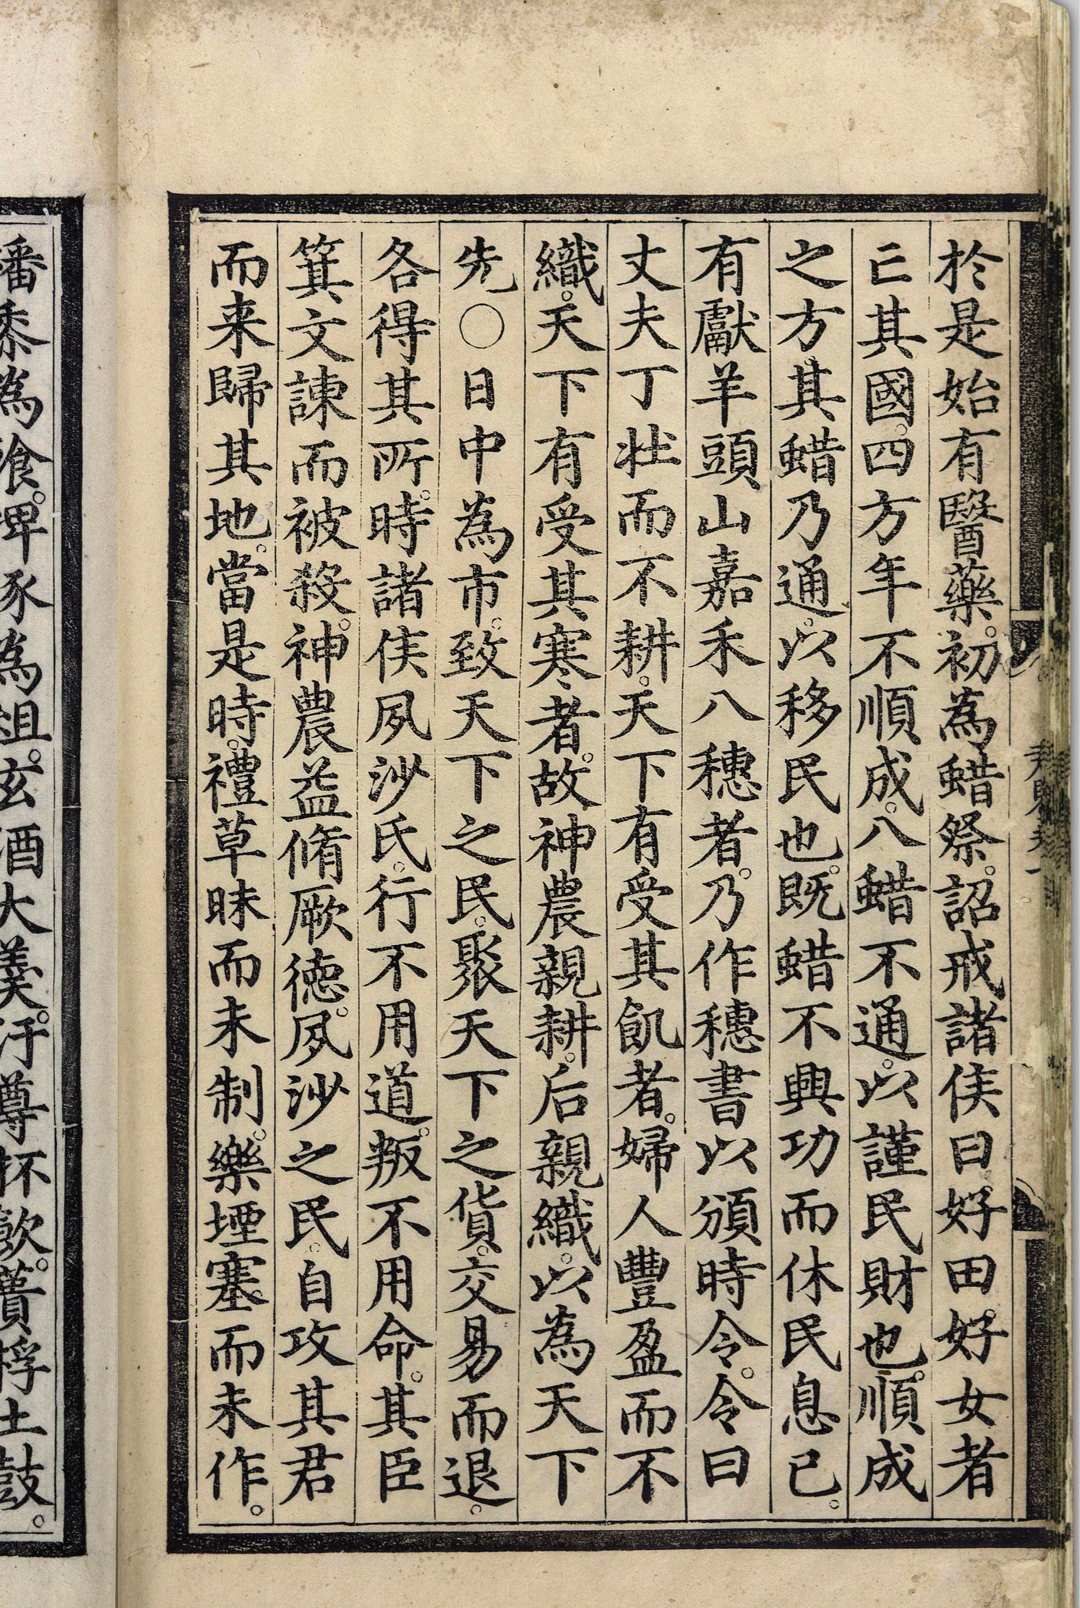 於是始有醫藥。初為蜡祭。詔戒諸侯曰。好田。好女者
亡其國。四方年不順成。八蜡不通。以謹民財也。順成
之方。其蜡乃通。以移民也。既蜡不興功而休民息已。
有獻羊頭山嘉禾八穗者。乃作穗書以頒時令。令曰
丈夫丁壯而不耕。天下有受其飢者。婦人豐盈而不
織。天下有受其寒者。故神農親耕。后親織。以為天下
先〇日中為市。致天下之民。聚天下之貨。交易而退。
各得其所。時諸侯夙沙氏。行不用道。叛不用命。其臣
箕文諫而被殺。神農益脩厥德。夙沙之民。自攻其君
而来歸其地。當是時。禮草昧而未制。樂堙塞而未作。
燔黍為飡。捭豚為俎。玄酒大羹。汙尊抔飲。蕢桴土鼓。